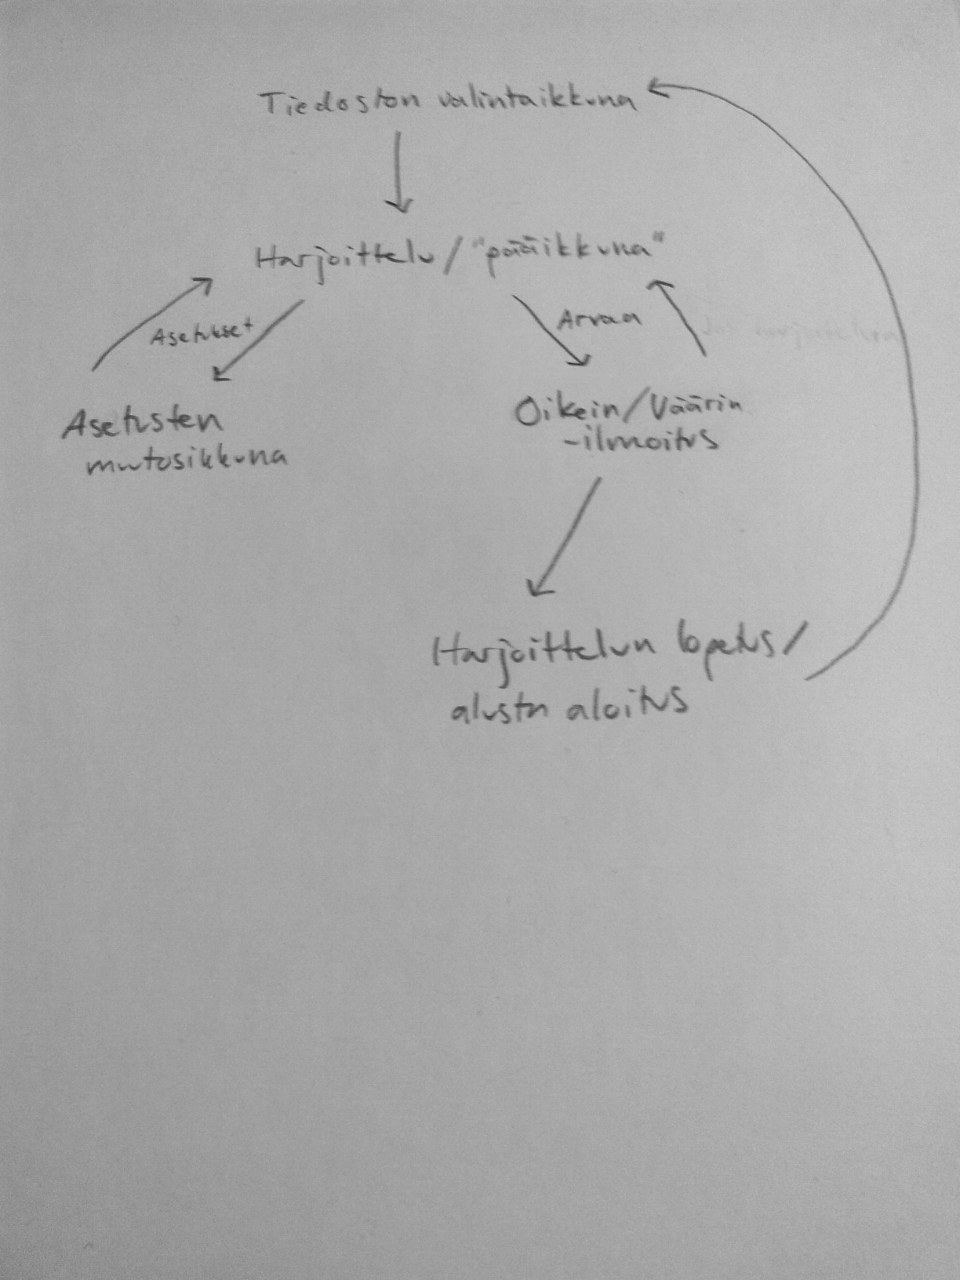 Tiedoston valintaikkuna
Harjoittelu/"pääikkuna"
Asetukset
Arvaa
Asetusten
muutosikkuna
Oikein/Väärin
-ilmoitus
Harjoittelun lopetus/
alusta aloitus